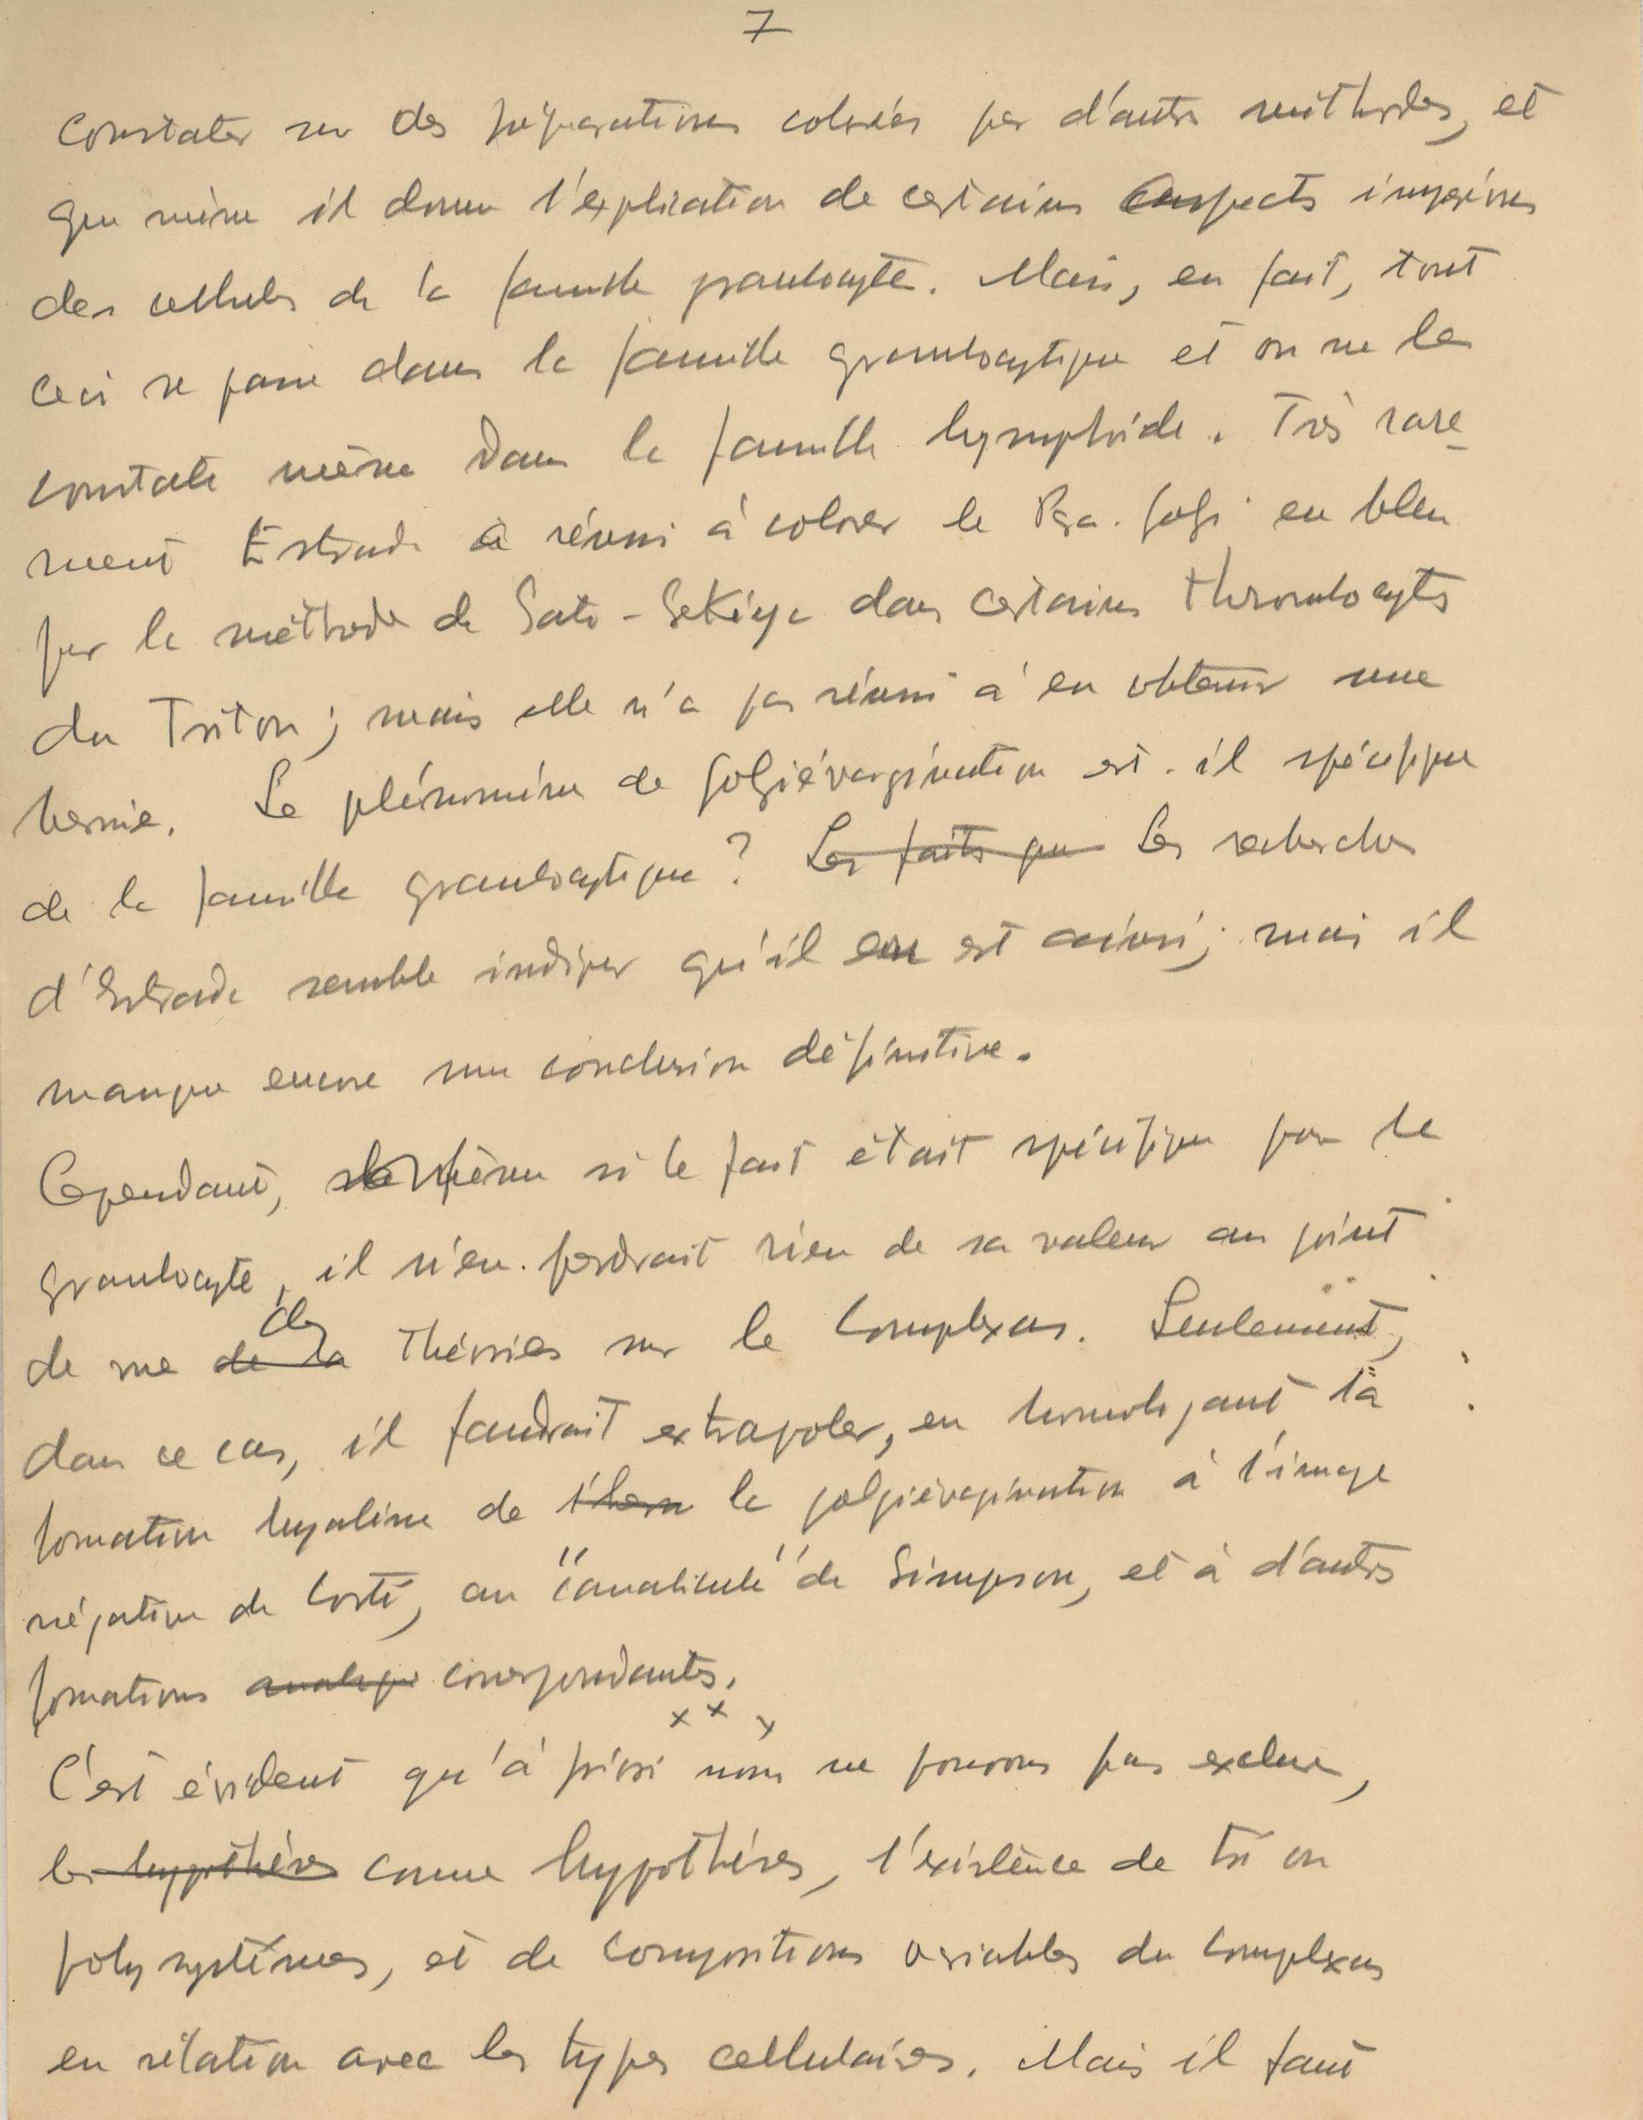 7
constater sur des préparations colorées par d'autres méthodes, et
que même il donne l'explication de certains aspects
des cellules de la famille granulocyte. Mais, en fait, tout
ceci se passe dans la famille granulocytique et on ne le
constate même dans la famille lymphoïde. Très rare-
ment Estrade a réussi à colorer le Golgi en bleu
par la méthode de Sato-Sekiya dans certains thrombocytes
du Triton; mais elle n'a pas réussi à en obtenir une
hernie. Le phénomène de golgiévagination est-il spécifique
de la famille granulocytique? Les faits que Les recherches
d'Estrade semble indiquer qu'il en est ainsi; mais il
manque encore une conclusion définitive.
Cependant, même si le fait était spécifique pour le
granulocyte, il n'en perdrait rien de sa valeur au point
des
de vue de la théories sur le complexus. Seulement,
dans ce cas, il faudrait extrapoler, en homologant la
formation hyaline de l'hern la golgiévagination à l'image
négative de Corti, au "canalicule" de Simpson, et à d'autres
formations analogu correspondantes.
x x x
C'est évident qu'à priori nous ne pouvons pas exclure,
les hypothèses comme hypothèses, l'existence de tri ou
polysystèmes, et de compositions variables du complexus
en rélation avec les types cellulaires. Mais il faut